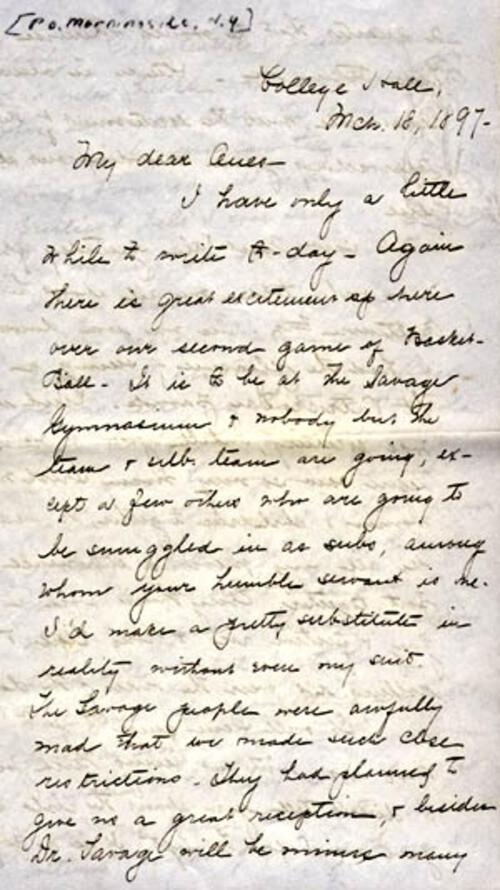 [P.O. Morningside. N.Y]
College Hall,
Mch. 18, 1897-
My dear
I have only a little
while to write to-day - Again
there is great excitement up here
over our second game of Basket-
Ball - It is to be at the Savage
Gymnasium & nobody but the
team & sub. team are going, ex-
cept a few others who are going to
be smuggled in as subs, among
whom your humble servant is me.
I'd make a pretty substitute in
reality without even my suit.
The Savage people were awfully
mad that we made such
restrictions. They had planned to
give us a great reception, & besides
Dr. Savage will be minus many